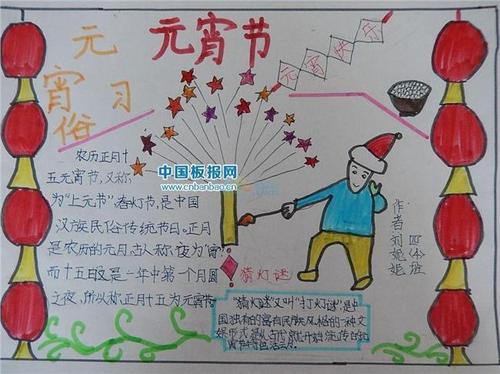 元宵节
元宵习俗
元宵快乐
农历正月十
五元宵节，又称
为"上元节"春灯节，是中国
汉族民俗传统节日。正月
是农历的元月，古人称夜为"宵"
而十五日又是一年中第一个月圆
之夜，所以称正月十五为元宵节
中国板报网
www.cnbanbao.cn
猜灯谜
"猜灯谜"又叫"打灯谜"是中
国独有的富有民族风格的一种文
作者
刘妮妮
四(4)班